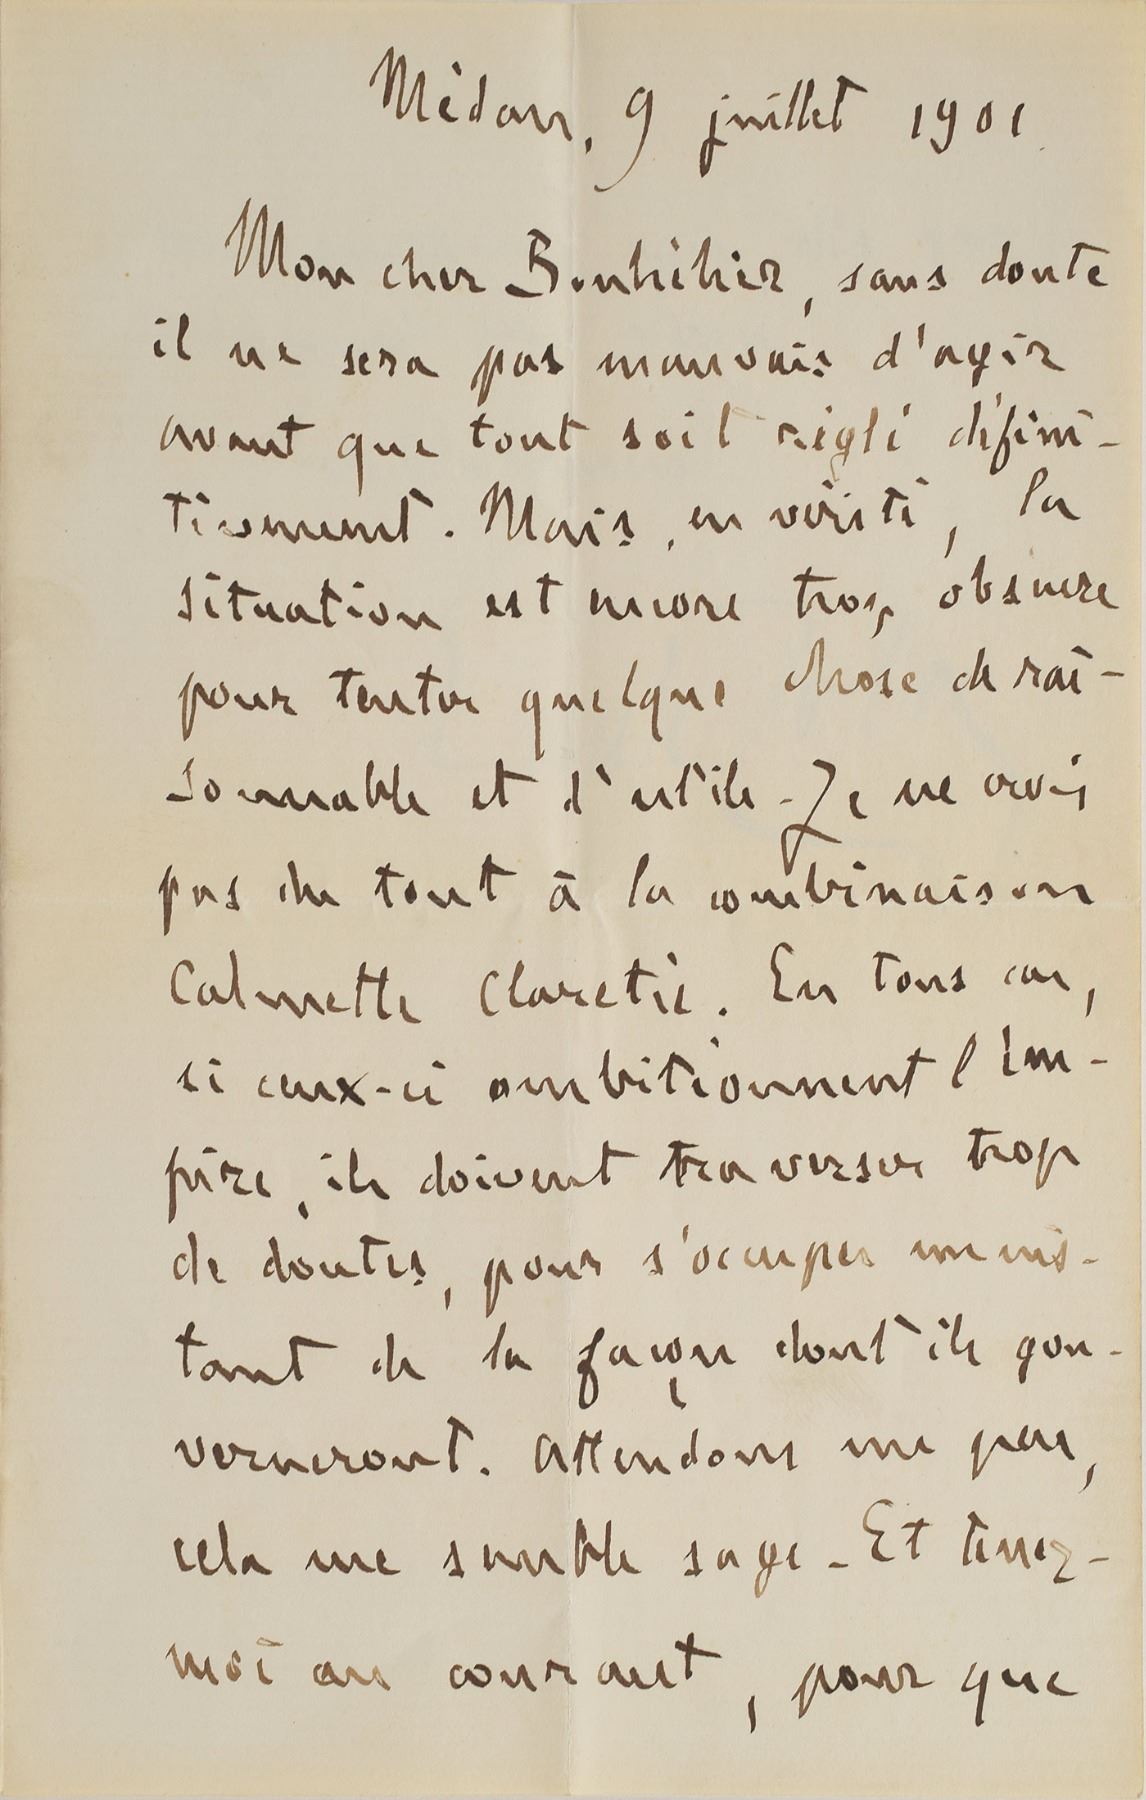 Médan, 9 juillet 1901
Mon cher Bouhélier, sans doute
il ne sera pas mauvais d'agir
avant que tout soit réglé défini-
tivement. Mais, en vérité, la
situation est encore trop obscure
pour tenter quelque chose de rai-
sonnable et d'utile. Je ne crois
pas du tout à la combinaison
Calmette Claretie. En tous cas,
si ceux-ci ambitionnent l'Em-
pire, ils doivent traverser trop
de doutes, pour s'occuper un ins-
tant de la façon dont ils gou-
verneront. Attendons un peu,
cela me semble sage. Et tenez-
moi au courant, pour que